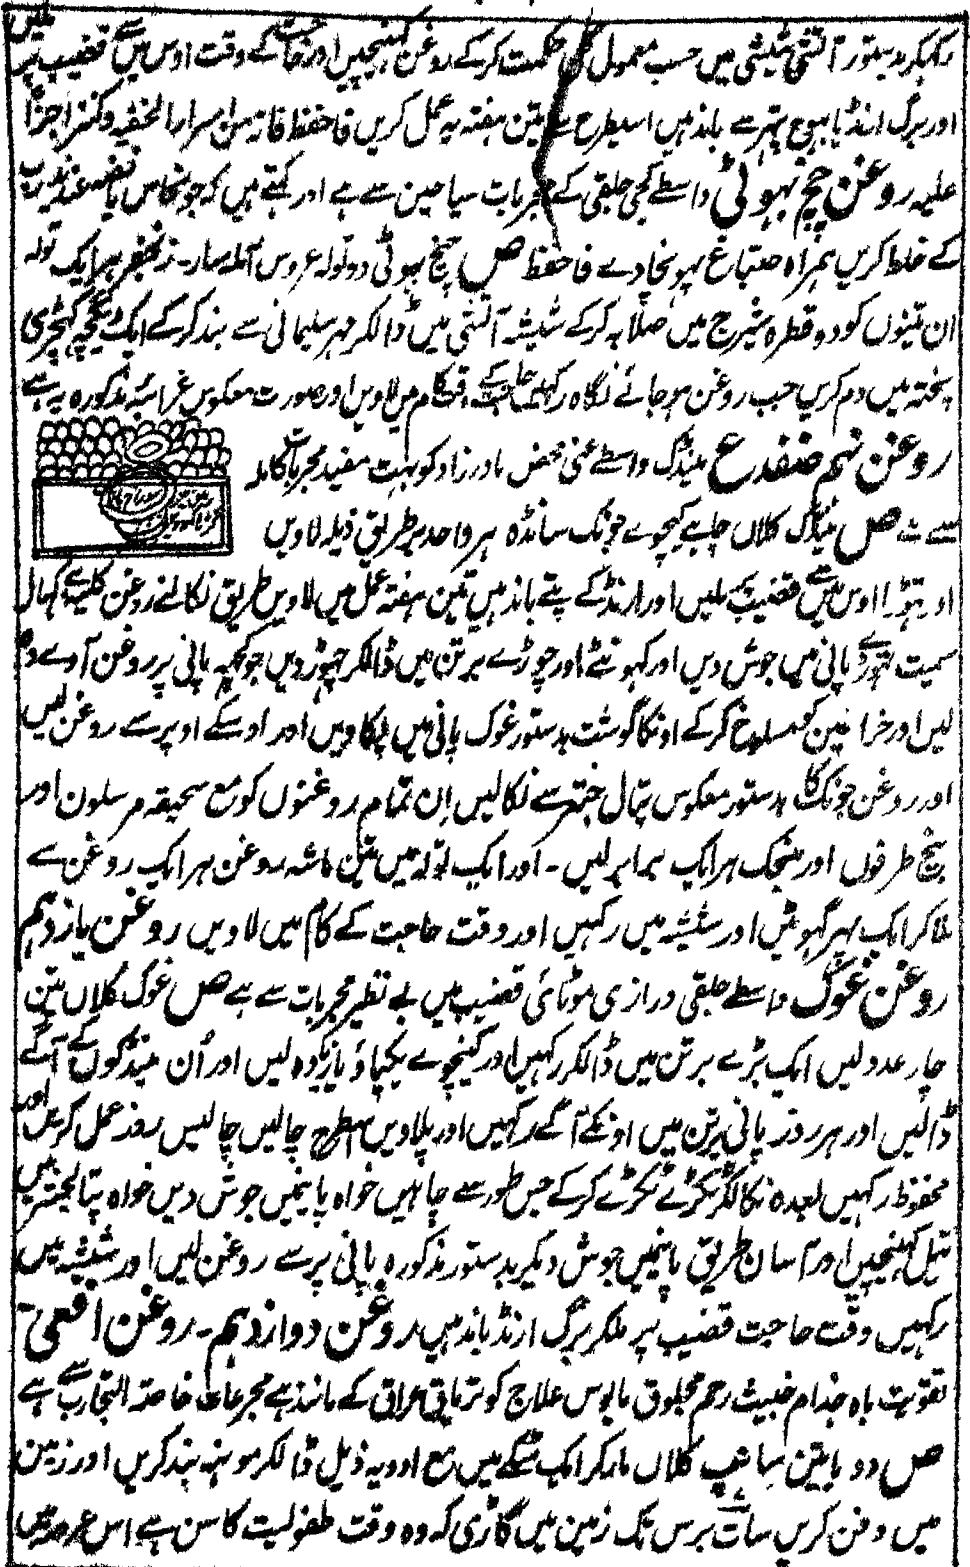 رکہکر بدستور آتشی شیشی میں حسب معمول گل حکمت کرکے روغن کہینچیں اور حاجت کے وقت اوس میں سے قضیب پر ملیں
اور برگ ارنڈ یا بہوج پتہر سے باندہیں اسیطرح سے تین ہفتہ یہ عمل کریں فاحفظ فانہ من اسرار الخفیہ وکنز اجزا
علیہ روغن بیچ بہوٹی واسطے کجی جلقی کے مجربات سیاحین سے ہے اور کہتے ہیں کہ جو نحاس یا فضہ
کے خلط کریں ہمراہ صباغ پہونچادے فاحفظ ص بیچ بہوٹی دو تولہ عروس آملہ سار۔ زنجفر ہر ایک تولہ
ان تینوں کو دو قطرہ شیرج میں صلایہ کرکے شیشہ آتشی میں ڈالکر مہر سلیمانی سے بند کرکے ایک دیگچہ کہچڑی
پختہ میں دم کریں جب روغن ہو جائے نگاہ رکہیں حاجت کے وقت کام میں لاویں اور صورت معکوس غرائبہ مذکورہ یہ ہے
روغن نہم ضفدع مینڈک واسطے عنین مخنس مادرزاد کو بہت مفید مجربات کاملہ
سے ہے ص مینڈک کلاں چاہے کیچوے جونک سانڈہ ہر واحد بطریق ذیل لاویں
اور تہوڑا اوس میں سے قضیب پر ملیں اور ارنڈ کے پتے باندہیں تین ہفتہ عمل میں لاویں طریق نکالنے روغن کا یہ ہے کہال
سمیت تہوڑے پانی میں جوش دیں اور کہونٹے اور چوڑے برتن میں ڈالکر چہوڑ دیں جو کچہہ پانی پر روغن آوے وہ
لیں اور خراطین کو مسلوخ کرکے اونکا گوشت بدستور غوک پانی میں پکاویں اور اوسکے اوپر سے روغن لیں
اور روغن جونک کا بدستور معکوس پتال جنتر سے نکالیں ان تمام روغنوں کو مع سحیقہ مرسلون اور
بیخ طرفوں اور منجک ہر ایک برابر لیں۔ اور ایک تولہ میں تین ماشہ روغن ہر ایک روغن سے
ملاکر ایک پہر گہوٹیں اور شیشہ میں رکہیں اور وقت حاجت کے کام میں لاویں روغن یازدہم
روغن غوک واسطے جلقی درازی موٹائی قضیب میں بے نظیر مجربات سے ہے ص غوک کلاں تین
چار عدد لیں ایک بڑے برتن میں ڈالکر رکہیں اور کینچوے یکپاؤ یا زیادہ لیں اور اُن مینڈکوں کے آگے
ڈالیں اور ہر روز پانی برتن میں اونکے آگے رکہیں اور پلاویں اسطرح چالیس چالیس روز عمل کریں اور
محفوظ رکہیں بعدہ نکالکر ٹکڑے ٹکڑے کرکے جس طور سے چاہیں خواہ پانیمیں جوش دیں خواہ پتال جنتر میں
تیل کہینچیں اور آسان طریق پانیمیں جوش دیکر بدستور مذکورہ پانی پر سے روغن لیں اور شیشہ میں
رکہیں وقت حاجت قضیب پر ملکر برگ ارنڈ باندہیں روغن دوازدہم۔ روغن افعی۔
تقویت باہ جذام خبیث رحم مجلوق مایوس علاج کو تریاق عراقی کے مانند ہے مجربات خاصتہ التجارب سے ہے
ص دو یا تین سانپ کلاں مارکر ایک مٹکے میں مع ادویہ ذیل ڈالکر مونہہ بند کریں اور زمین
میں دفن کریں سات برس تک زمین میں گاڑی کہ وہ وقت طفولیت کا سن ہے اس عرصہ میں